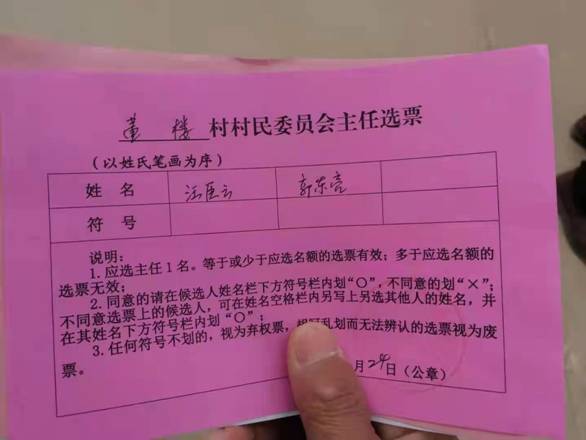 董楼村村民委员会主任选票
(以姓氏笔画为序)
姓 名 汪臣云 郭东亮
符 号
说明:
1.应选主任1名。等于或少于应选名额的选票有效;多于应选名额的
选票无效;
2.同意的请在候选人姓名栏下方符号栏内划“○”,不同意的划“×”;
不同意选票上的候选人,可在姓名空格栏内另写上另选其他人的姓名,并
在其姓名下方符号栏内划“○”;
3.任何符号不划的,视为弃权票,胡写乱划而无法辨认的选票视为废
票。
月24日(公章)